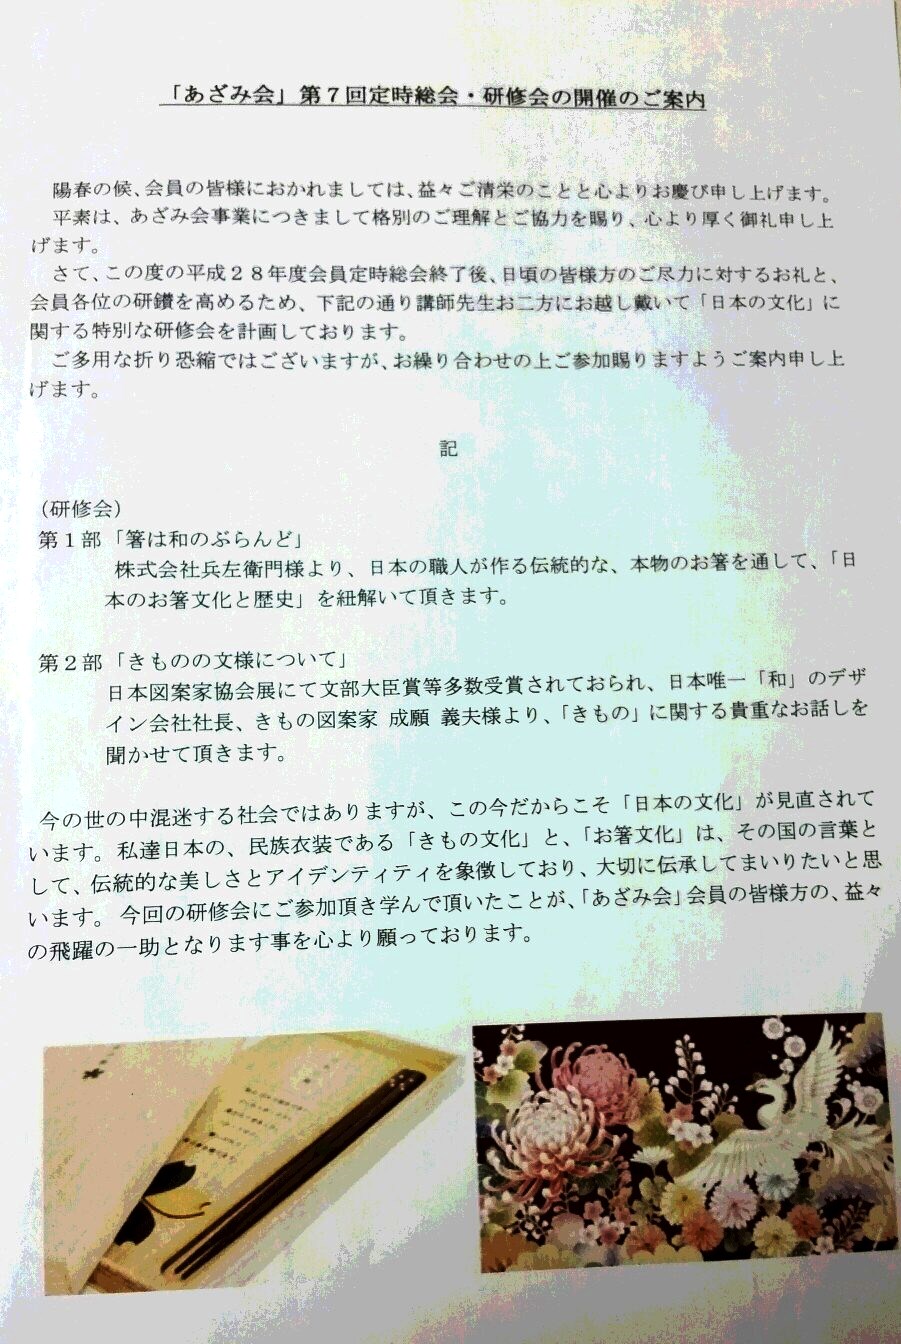 「あざみ会」第７回定時総会・研修会の開催のご案内
陽春の候、会員の皆様におかれましては、益々ご清栄のことと心よりお慶び申し上げます。
平素は、あざみ会事業につきまして格別のご理解とご協力を賜り、心より厚く御礼申し上
げます。
さて、この度の平成２８年度会員定時総会終了後、日頃の皆様方のご尽力に対するお礼と、
会員各位の研鑽を高めるため、下記の通り講師先生お二方にお越し戴いて「日本の文化」に
関する特別な研修会を計画しております。
ご多用な折り恐縮ではございますが、お繰り合わせの上ご参加賜りますようご案内申し上
げます。
記
（研修会）
第１部「箸は和のぶらんど」
株式会社兵左衛門様より、日本の職人が作る伝統的な、本物のお箸を通して、「日
本のお箸文化と歴史」を紐解いて頂きます。
第２部「きものの文様について」
日本図案家協会展にて文部大臣賞等多数受賞されておられ、日本唯一「和」のデザ
イン会社社長、きもの図案家 成願 義夫様より、「きもの」に関する貴重なお話しを
聞かせて頂きます。
今の世の中混迷する社会ではありますが、この今だからこそ「日本の文化」が見直されて
います。私達日本の、民族衣装である「きもの文化」と、「お箸文化」は、その国の言葉と
して、伝統的な美しさとアイデンティティを象徴しており、大切に伝承してまいりたいと思
います。今回の研修会にご参加頂き学んで頂いたことが、「あざみ会」会員の皆様方の、益々
の飛躍の一助となります事を心より願っております。